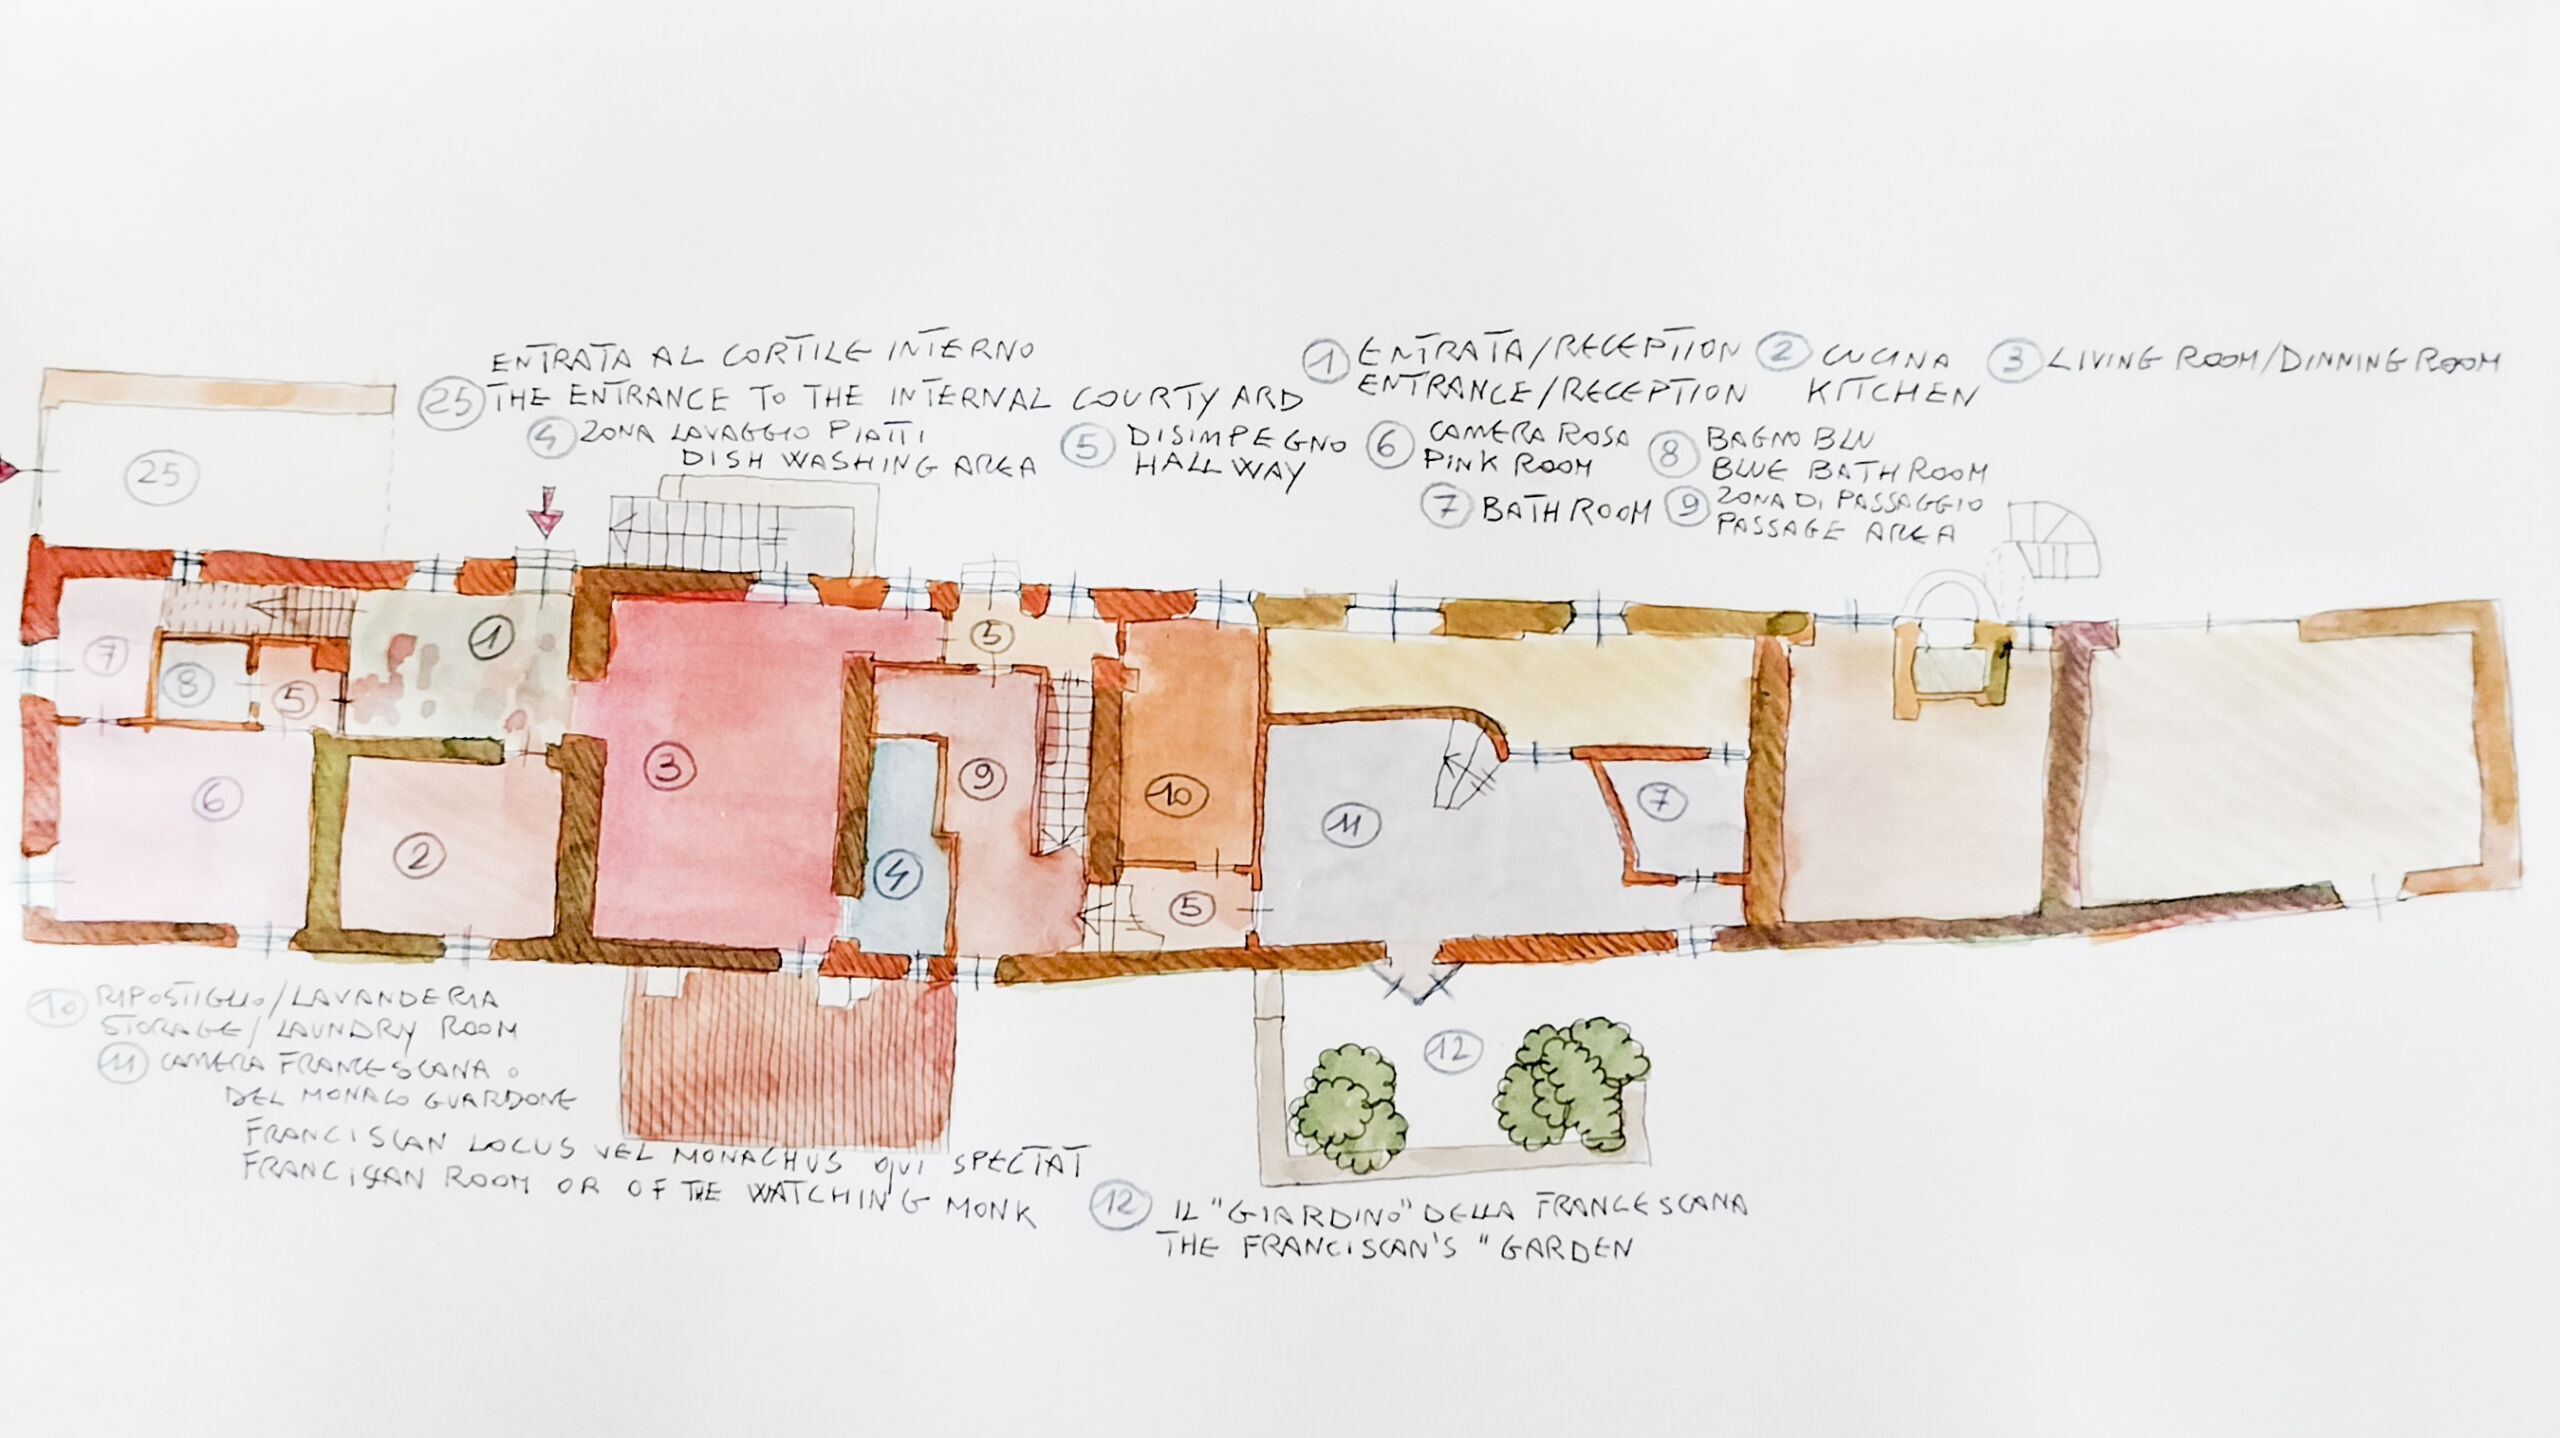 ENTRATA AL CORTILE INTERNO
25 THE ENTRANCE TO THE INTERNAL COURTYARD
4 ZONA LAVAGGIO PIATTI
DISH WASHING AREA
5 DISIMPEGNO
HALLWAY
1 ENTRATA/RECEPTION
ENTRANCE/RECEPTION
2 CUCINA
KITCHEN
3 LIVING ROOM/DINNING ROOM
6 CAMERA ROSA
PINK ROOM
8 BAGNO BLU
BLUE BATHROOM
7 BATHROOM
9 ZONA DI PASSAGGIO
PASSAGE AREA
25
1
5
7
8
5
3
6
2
9
4
10
11
7
5
12
10 RIPOSTIGLIO/LAVANDERIA
STORAGE/LAUNDRY ROOM
11 CAMERA FRANCESCANA O
DEL MONACO GUARDONE
FRANCISCAN LOCUS VEL MONACHUS QUI SPECTAT
FRANCISCAN ROOM OR OF THE WATCHING MONK
12 IL "GIARDINO" DELLA FRANCESCANA
THE FRANCISCAN'S "GARDEN